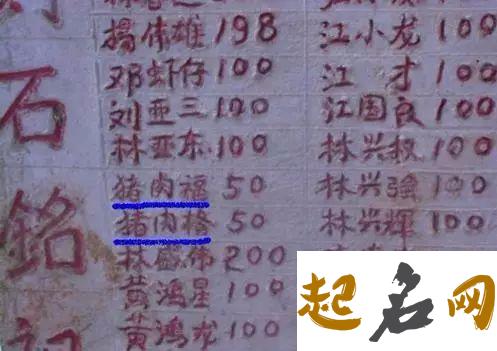 石
銘
楊伟雄 198 江小龙 100
邓虾仔 100 江才 100
刘亚三 100 江国良 100
林亚东 100 林兴权 100
猪肉福 50 林兴强 100
猪肉格 50 林兴辉 100
林盛伟 200
黄鸿星 100
黄鸿龙 100
起名网